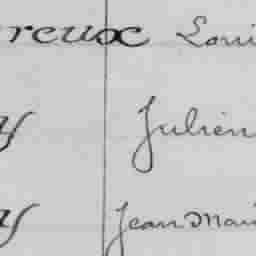 reux Loui
y Julien
y Jean Mari